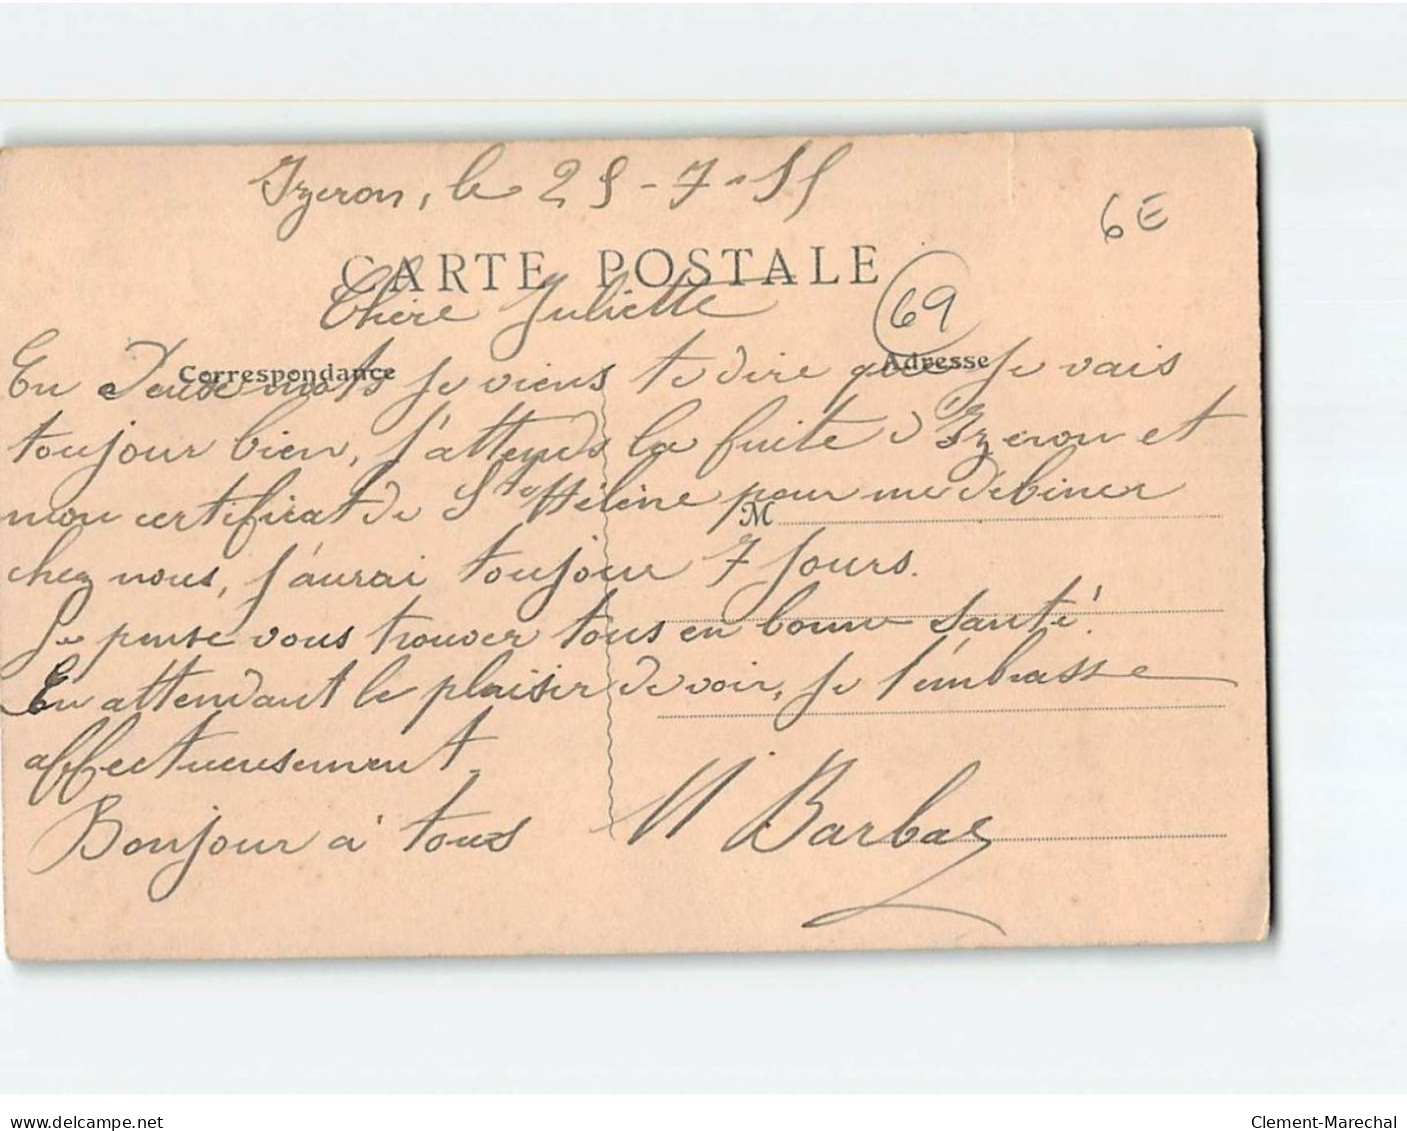 Izeron, le 25-7-15
6E
CARTE POSTALE
Chère Juliette
69
Correspondance
Adresse
En Deux mots je viens te dire que Je vais
toujour bien, j'attends la fuite d'Izeron et
mon certificat de Ste Hélène pour me debiner
M
chez nous, j'aurai toujour 7 Jours.
Je pense vous trouver tous en bonne Santé.
En attendant le plaisir de voir, je t'embrasse
affectueusement,
Bonjour à tous
Barbaz
delcampe.net
Clement-Marechal